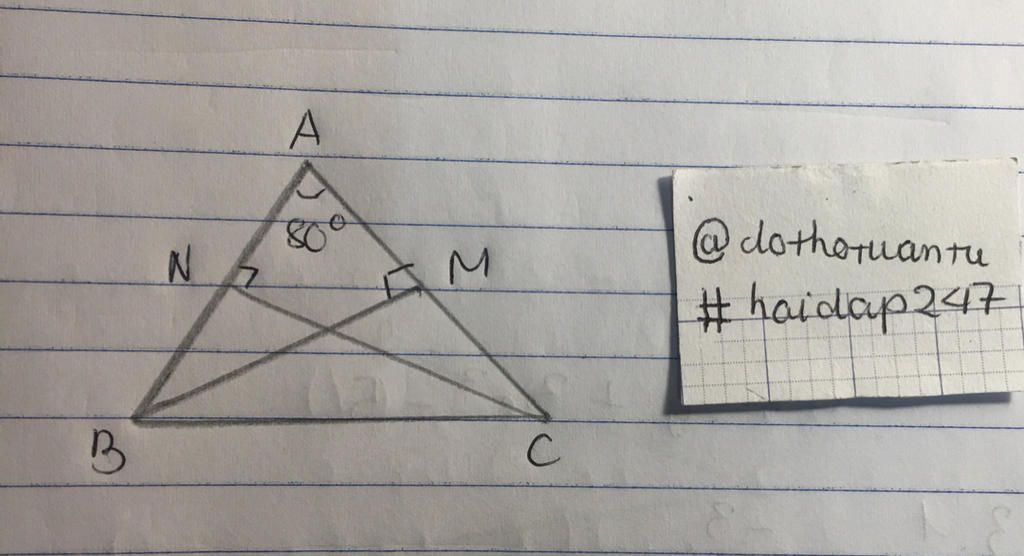 A
80°
N
M
B
C
@dothotuantu
#haidap247